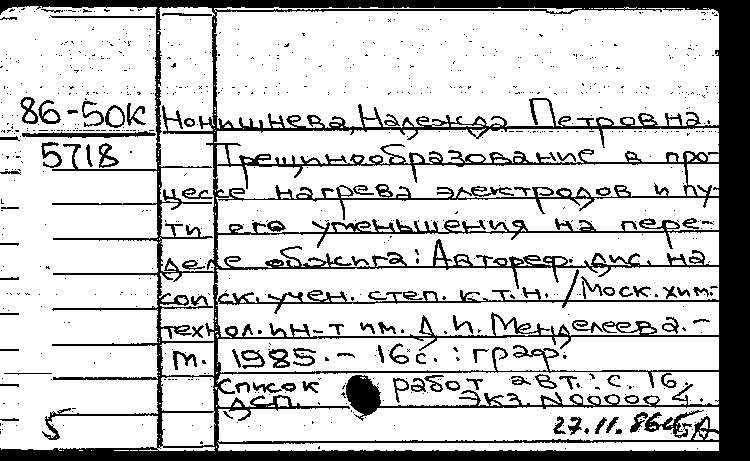 86-50к
5718
Нонишнева, Надежда Петровна.
Трещинообразование в про-
цессе нагрева электродов и пу-
ти его уменьшения на пере-
деле обжига: Автореф. дис. на
соиск. учен. степ. к.т.н. / Моск. хим.-
технол. ин-т им. Д.И. Менделеева. -
м., 1985. - 16с. : граф.
Список работ авт.: с. 16
ДСП. Экз. N00000 4.
27.11.86
5